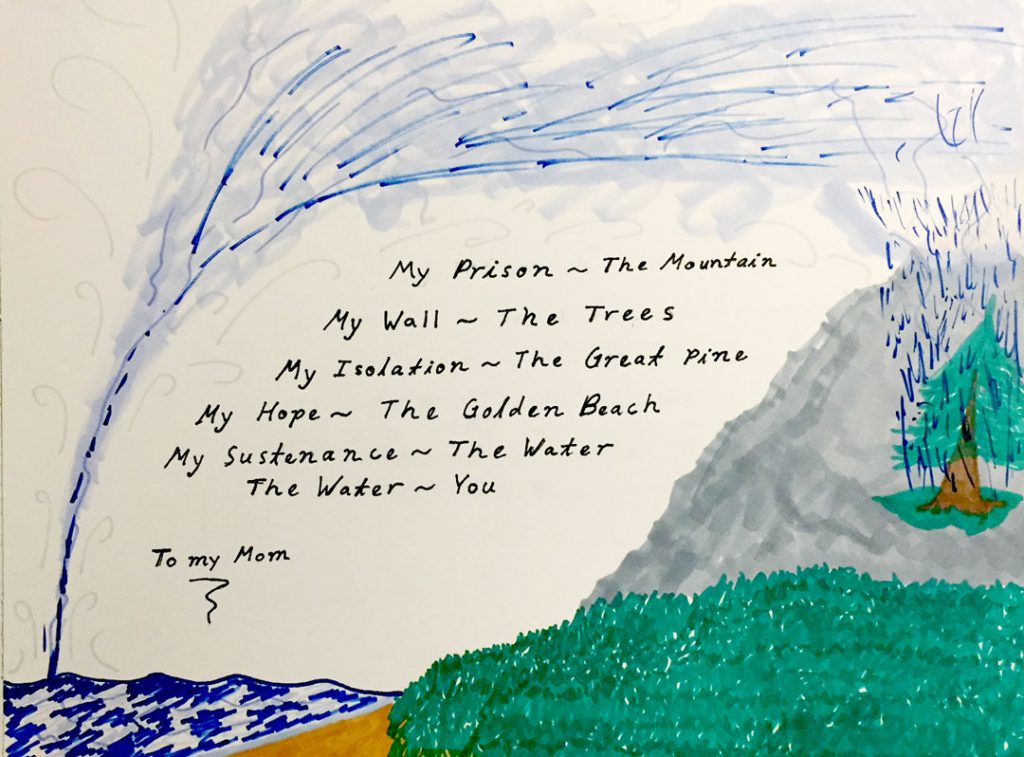 My Prison ~ The Mountain
My Wall ~ The Trees
My Isolation ~ The Great Pine
My Hope ~ The Golden Beach
My Sustenance ~ The Water
The Water ~ You
To my Mom